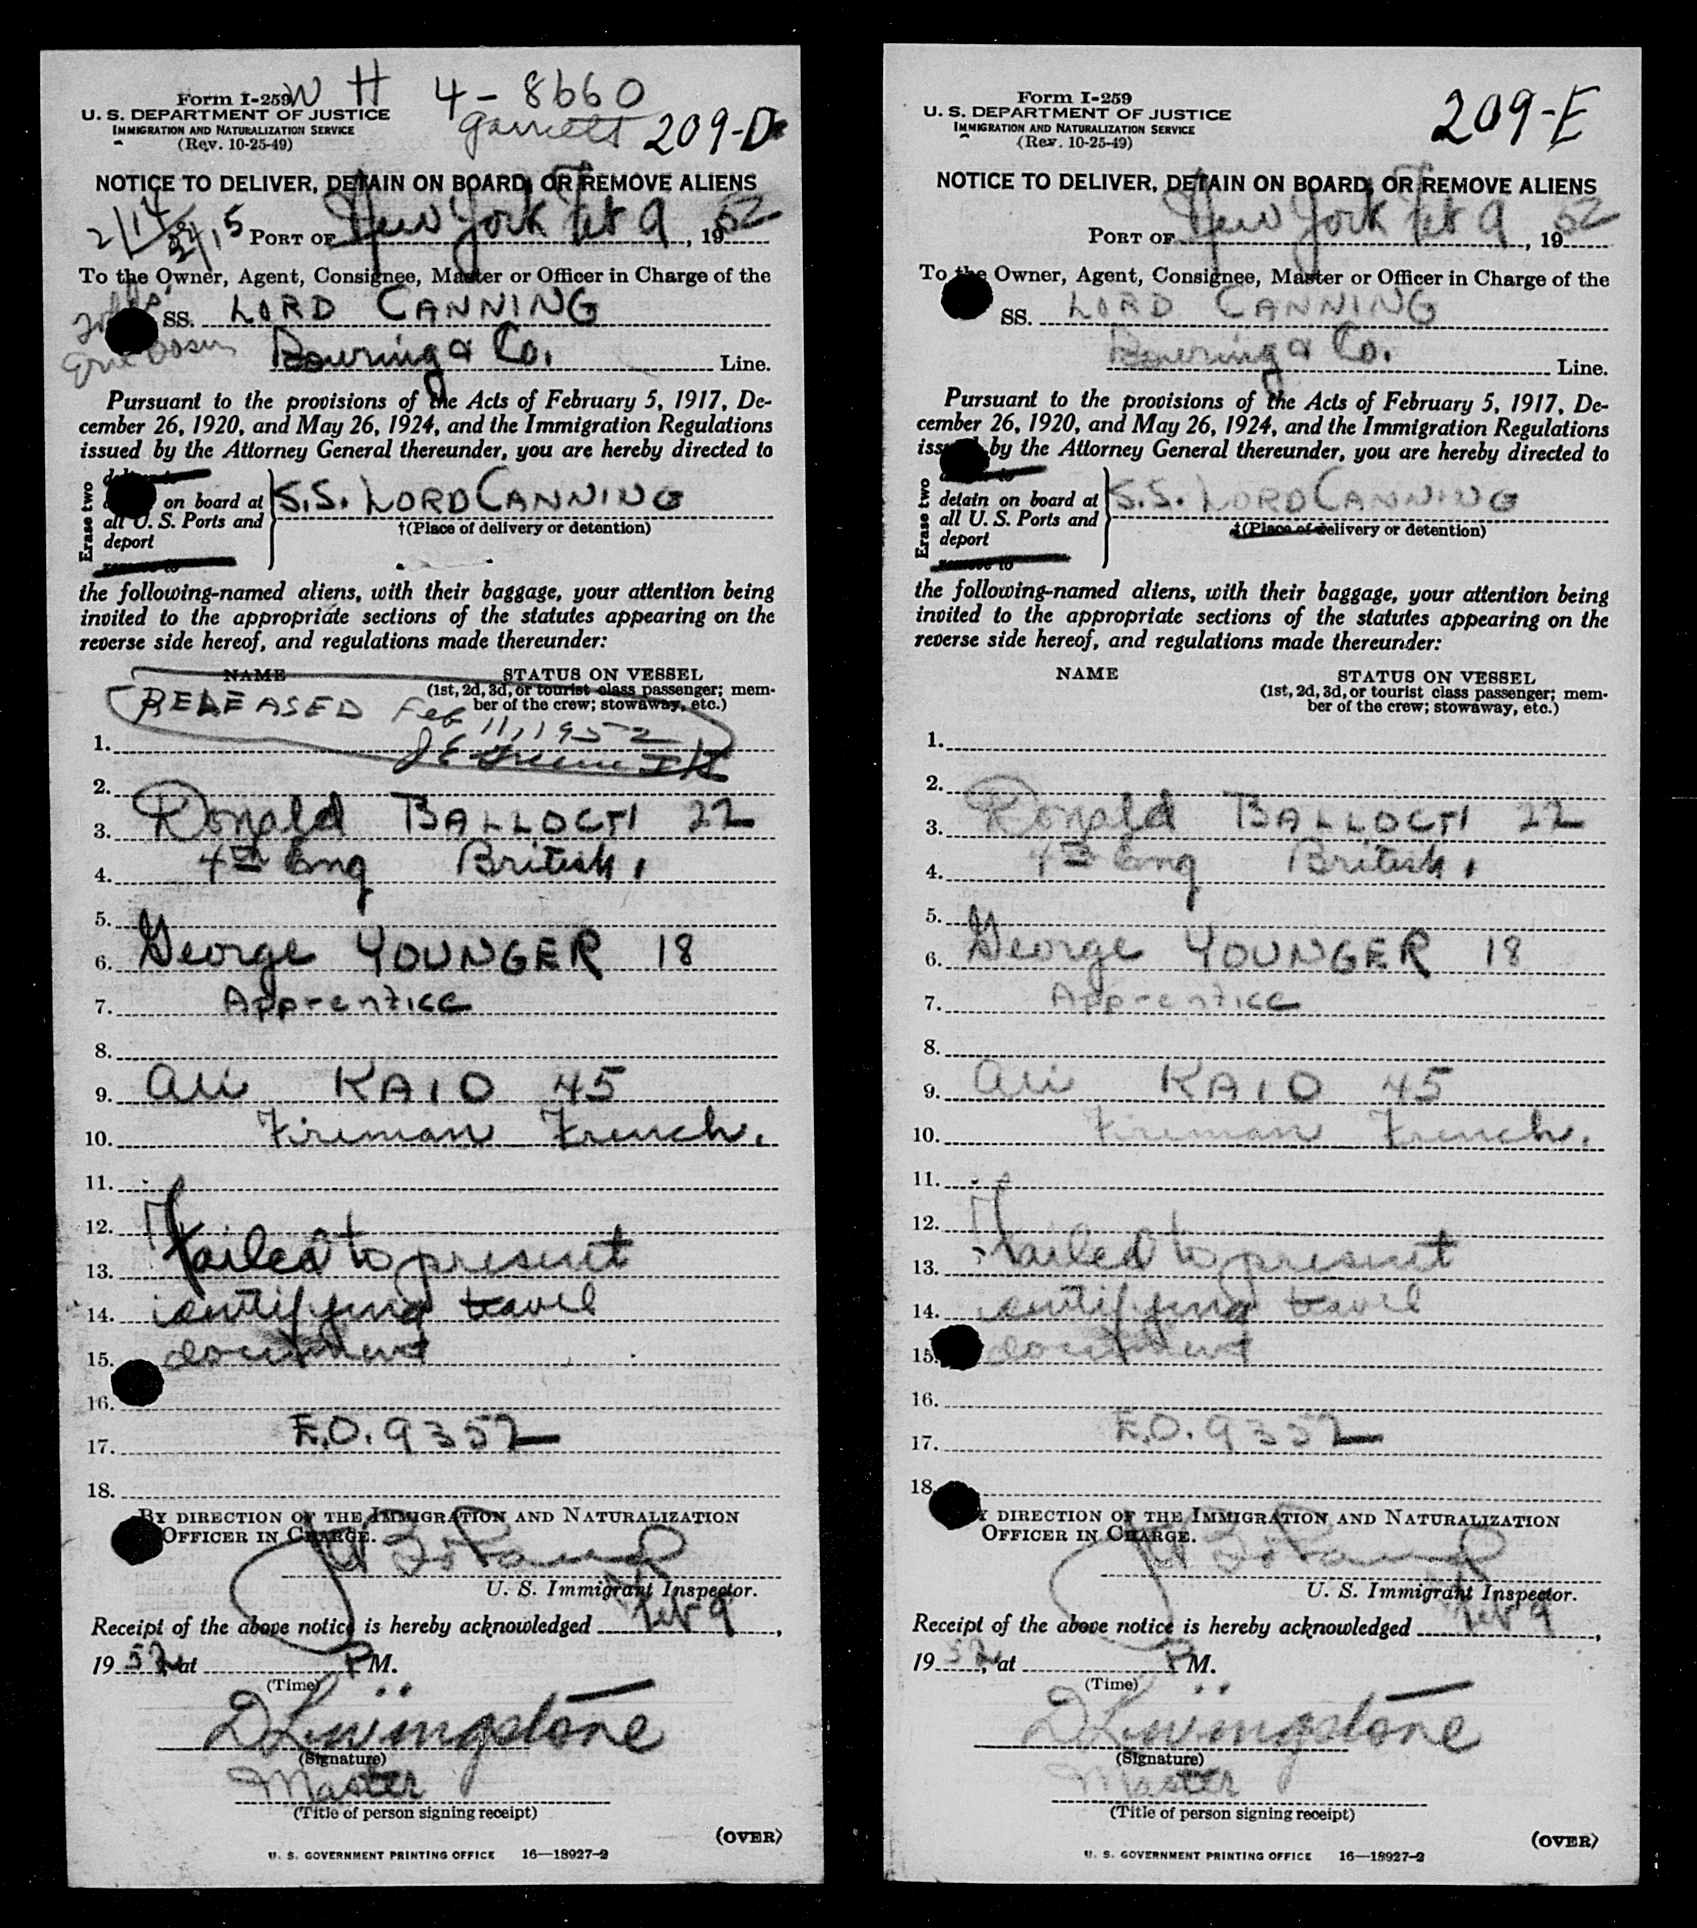 Form I-259 W H 4-8660
U. S. DEPARTMENT OF JUSTICE Garrett 209-D
IMMIGRATION AND NATURALIZATION SERVICE
(Rev. 10-25-49)
NOTICE TO DELIVER, DETAIN ON BOARD, OR REMOVE ALIENS
PORT OF New York Feb 9, 1952
To the Owner, Agent, Consignee, Master or Officer in Charge of the
SS. LORD CANNING
Bowring & Co. Line.
Pursuant to the provisions of the Acts of February 5, 1917, De-
cember 26, 1920, and May 26, 1924, and the Immigration Regulations
issued by the Attorney General thereunder, you are hereby directed to
Erase two
on board at
all U. S. Ports and
deport
remove to
S.S. LORD CANNING
†(Place of delivery or detention)
the following-named aliens, with their baggage, your attention being
invited to the appropriate sections of the statutes appearing on the
reverse side hereof, and regulations made thereunder:
NAME STATUS ON VESSEL
(1st, 2d, 3d, or tourist class passenger; mem-
ber of the crew; stowaway, etc.)
RELEASED Feb 11, 1952
1.
2.
3. Ronald BALLOCH 22
4. 4th Eng British.
5.
6. George YOUNGER 18
7. Apprentice
8.
9. Ali KAID 45
10. Fireman French.
11.
12.
13. Failed to present
14. identifying travel
15. document
16.
17. E.O. 9352
18.
BY DIRECTION OF THE IMMIGRATION AND NATURALIZATION
OFFICER IN CHARGE.
U. S. Immigrant Inspector.
Receipt of the above notice is hereby acknowledged Feb 9,
1952, at P M.
(Time)
D Livingstone
(Signature)
Master
(Title of person signing receipt)
(OVER)
U. S. GOVERNMENT PRINTING OFFICE 16—18927-2
Form I-259
U. S. DEPARTMENT OF JUSTICE 209-E
IMMIGRATION AND NATURALIZATION SERVICE
(Rev. 10-25-49)
NOTICE TO DELIVER, DETAIN ON BOARD, OR REMOVE ALIENS
PORT OF New York Feb 9, 1952
To the Owner, Agent, Consignee, Master or Officer in Charge of the
SS. LORD CANNING
Bowring & Co. Line.
Pursuant to the provisions of the Acts of February 5, 1917, De-
cember 26, 1920, and May 26, 1924, and the Immigration Regulations
issued by the Attorney General thereunder, you are hereby directed to
Erase two
detain on board at
all U. S. Ports and
deport
remove to
S.S. LORD CANNING
‡(Place of delivery or detention)
the following-named aliens, with their baggage, your attention being
invited to the appropriate sections of the statutes appearing on the
reverse side hereof, and regulations made thereunder:
NAME STATUS ON VESSEL
(1st, 2d, 3d, or tourist class passenger; mem-
ber of the crew; stowaway, etc.)
1.
2.
3. Ronald BALLOCH 22
4. 4th Eng British.
5.
6. George YOUNGER 18
7. Apprentice
8.
9. Ali KAID 45
10. Fireman French.
11.
12.
13. Failed to present
14. identifying travel
15. document
16.
17. E.O. 9352
18.
BY DIRECTION OF THE IMMIGRATION AND NATURALIZATION
OFFICER IN CHARGE.
U. S. Immigrant Inspector.
Receipt of the above notice is hereby acknowledged Feb 9,
1952, at P M.
(Time)
D Livingstone
(Signature)
Master
(Title of person signing receipt)
(OVER)
U. S. GOVERNMENT PRINTING OFFICE 16—18927-2